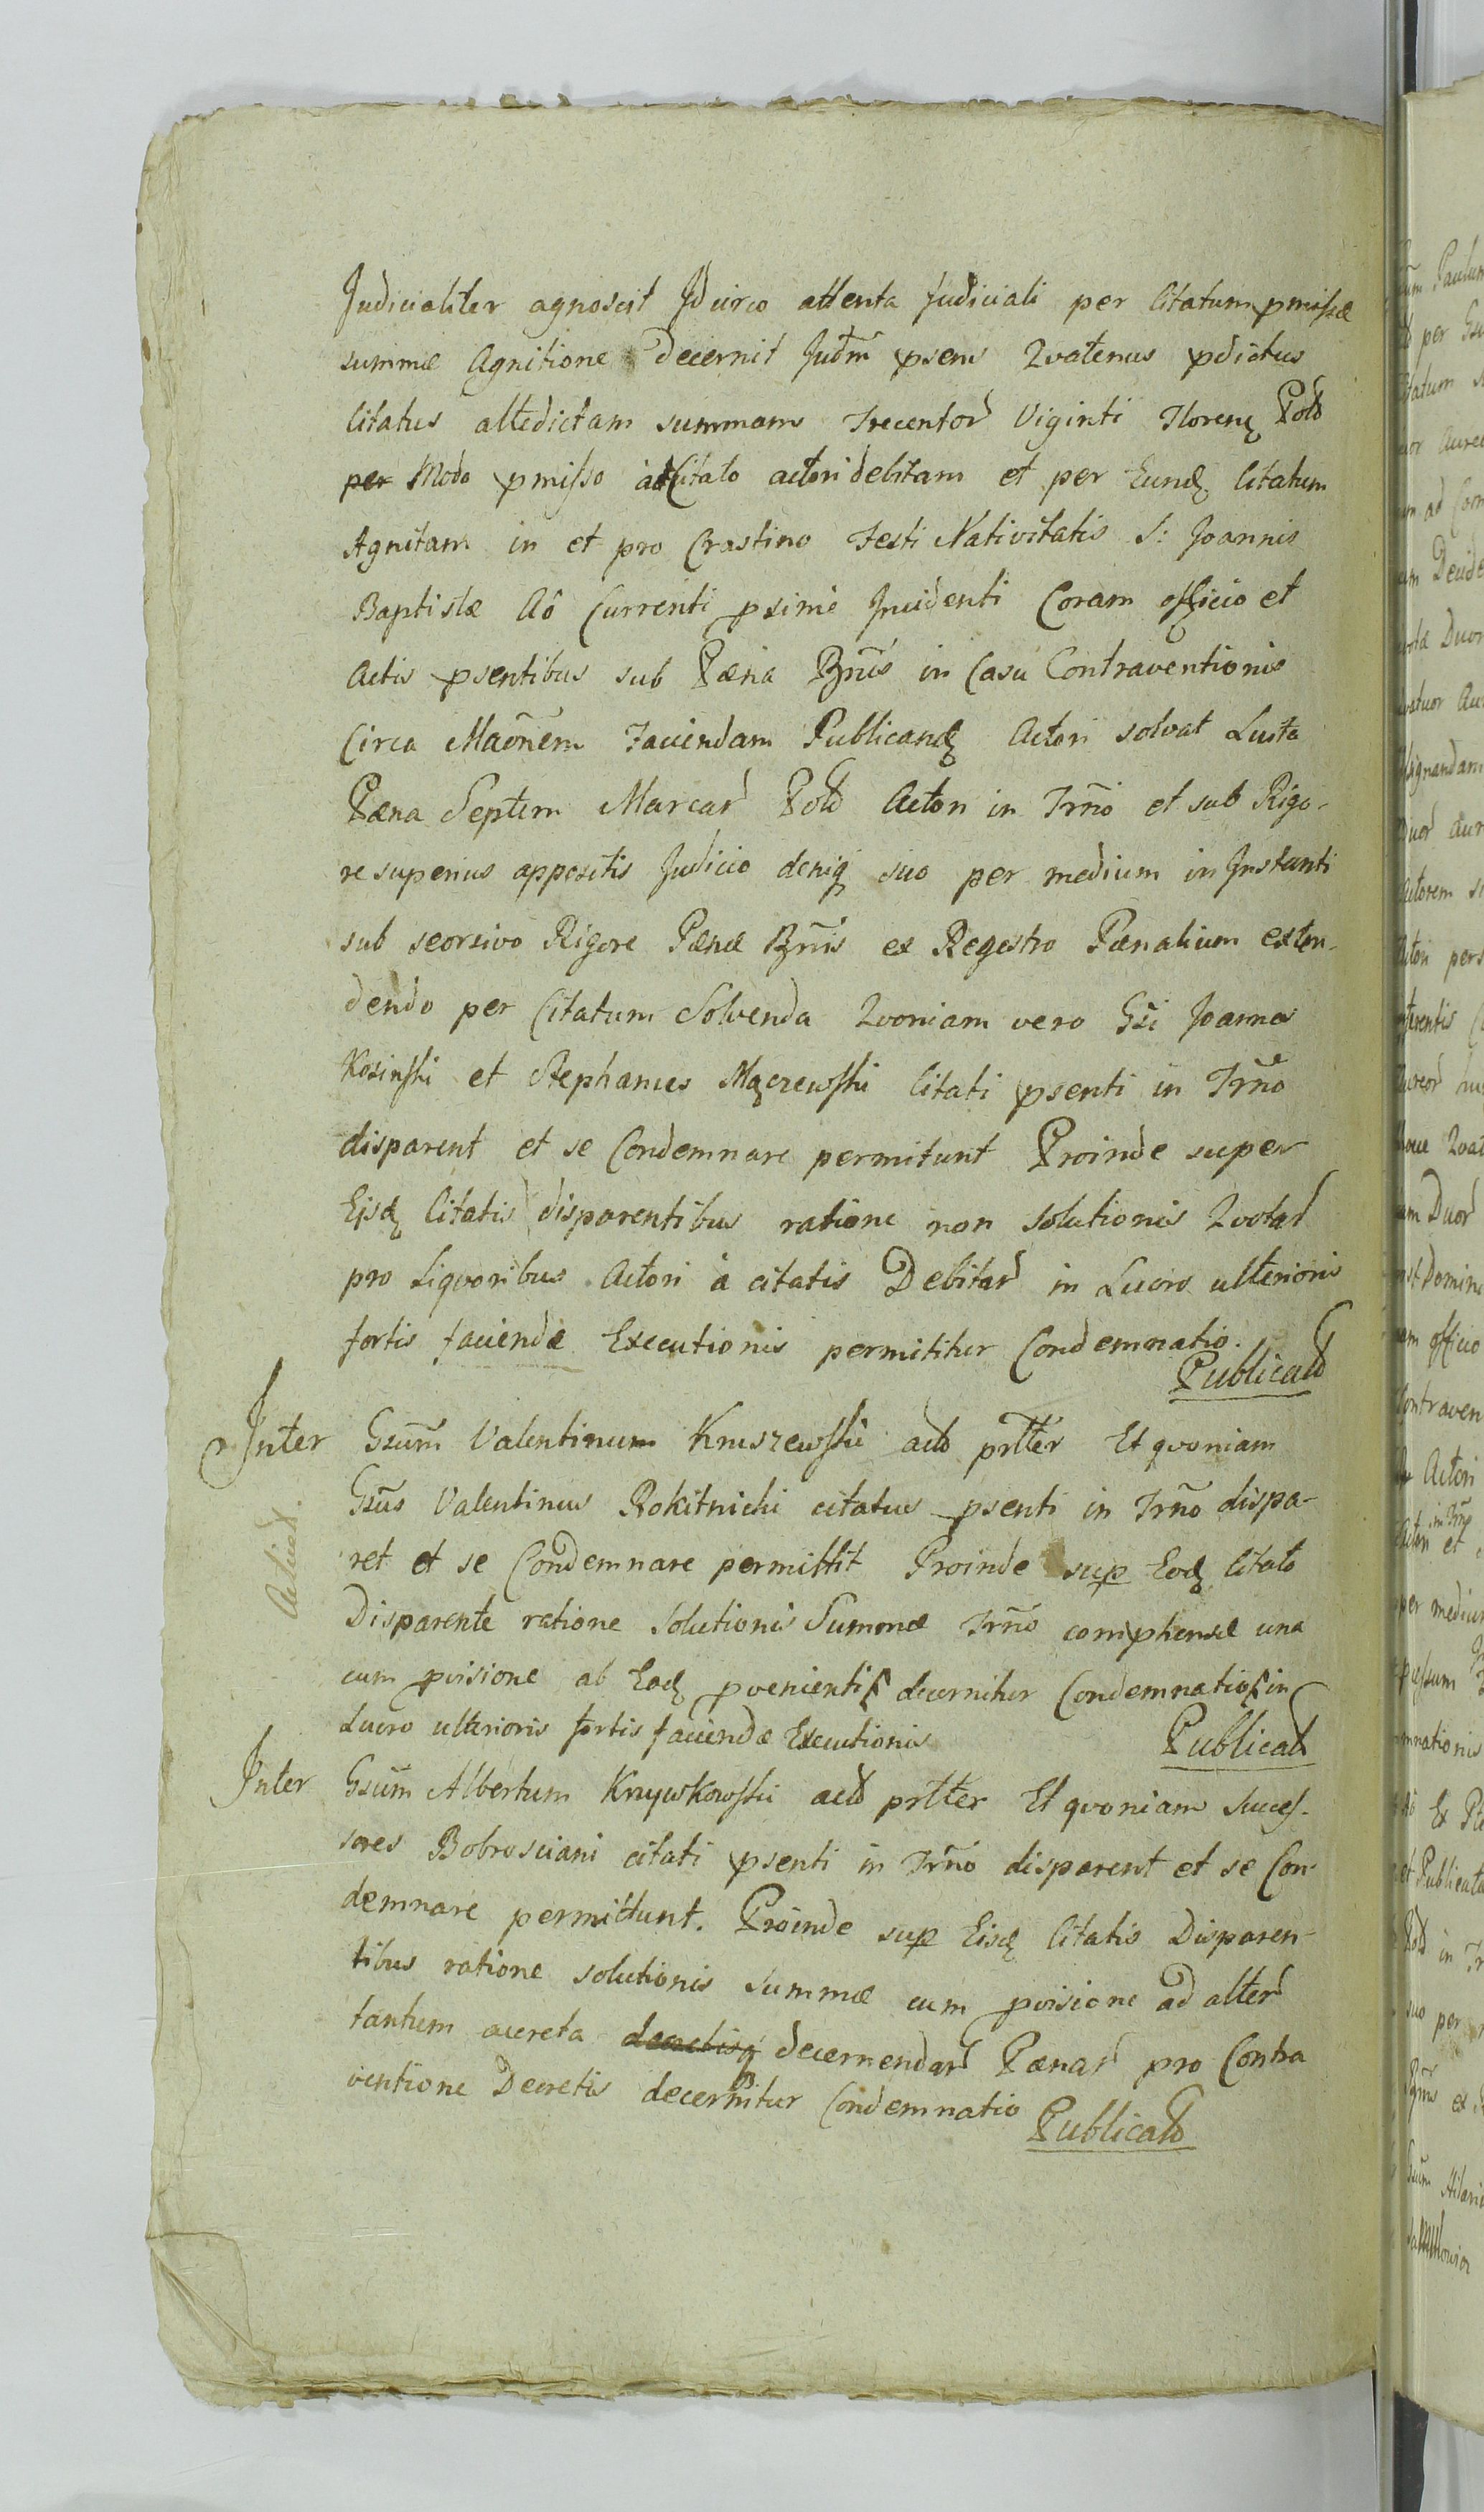 Judicialiter agnoscit Idcirco attenta Judiciali per Citatum pmissæ
summæ Agnitione decernit Judm psens Qvatenus pdictus
Citatus attedictam summam Trecentor Viginti Floren Pol
per Modo pmisso à Citato actori debitam et per Eund Citatum
Agnitam in et pro Crastino Festi Nativitatis S: Joannis
Baptistæ Aô Currenti pximè Incidenti Coram officio et
Actis psentibus sub Pæna Bnis in Casu Contraventionis
Circa Maônem Faciendam Publicand Actori solvat Lusta
Pæna Septem Marcar Pol Actori in Trno et sub Rigo-
re superius appositis Judicio deniq suo per medium in Instanti
sub seorsivo Rigore Pænæ Bnis ex Regestro Pænalium exten-
dendo per Citatum Solvenda Qvoniam vero Gsi Joannes
Kosinski et Stephanus Mączewski Citati psenti in Trno
disparent et se Condemnare permitunt Proinde super
Eisd Citatis disparentibus ratione non solutionis Qvotar
pro Liqvoribus Actori à citatis Debitar in Lucro ulterioris
fortis faciendæ Executionis permititur Condemnatio.
Publicat
Inter Gsum Valentinum Kruszewski act prtter Et qvoniam
Gsus Valentinus Rokitnicki citatus psenti in Trno dispa-
ret et se Condemnare permittit Proinde sup Eod Citato
Acticat.
Disparente ratione Solutionis Summæ Trno comphensæ una
cum pvisione ab Ead pvenienti decernitur Condemnatio in
Lucro ulterioris fortis faciendæ Executionis
Publicat
Inter Gsum Albertum Krzywkowski act prtter Et qvoniam Succes-
sores Bobrosciani citati psenti in Trno disparent et se Con-
demnare permittunt. Proinde sup Eisd Citatis Disparen-
tibus ratione solutionis Summæ cum pvisione ad alter
tantum acreta decernendar Pænar pro Contra
ventione Decretis decernitur Condemnatio
Publicat